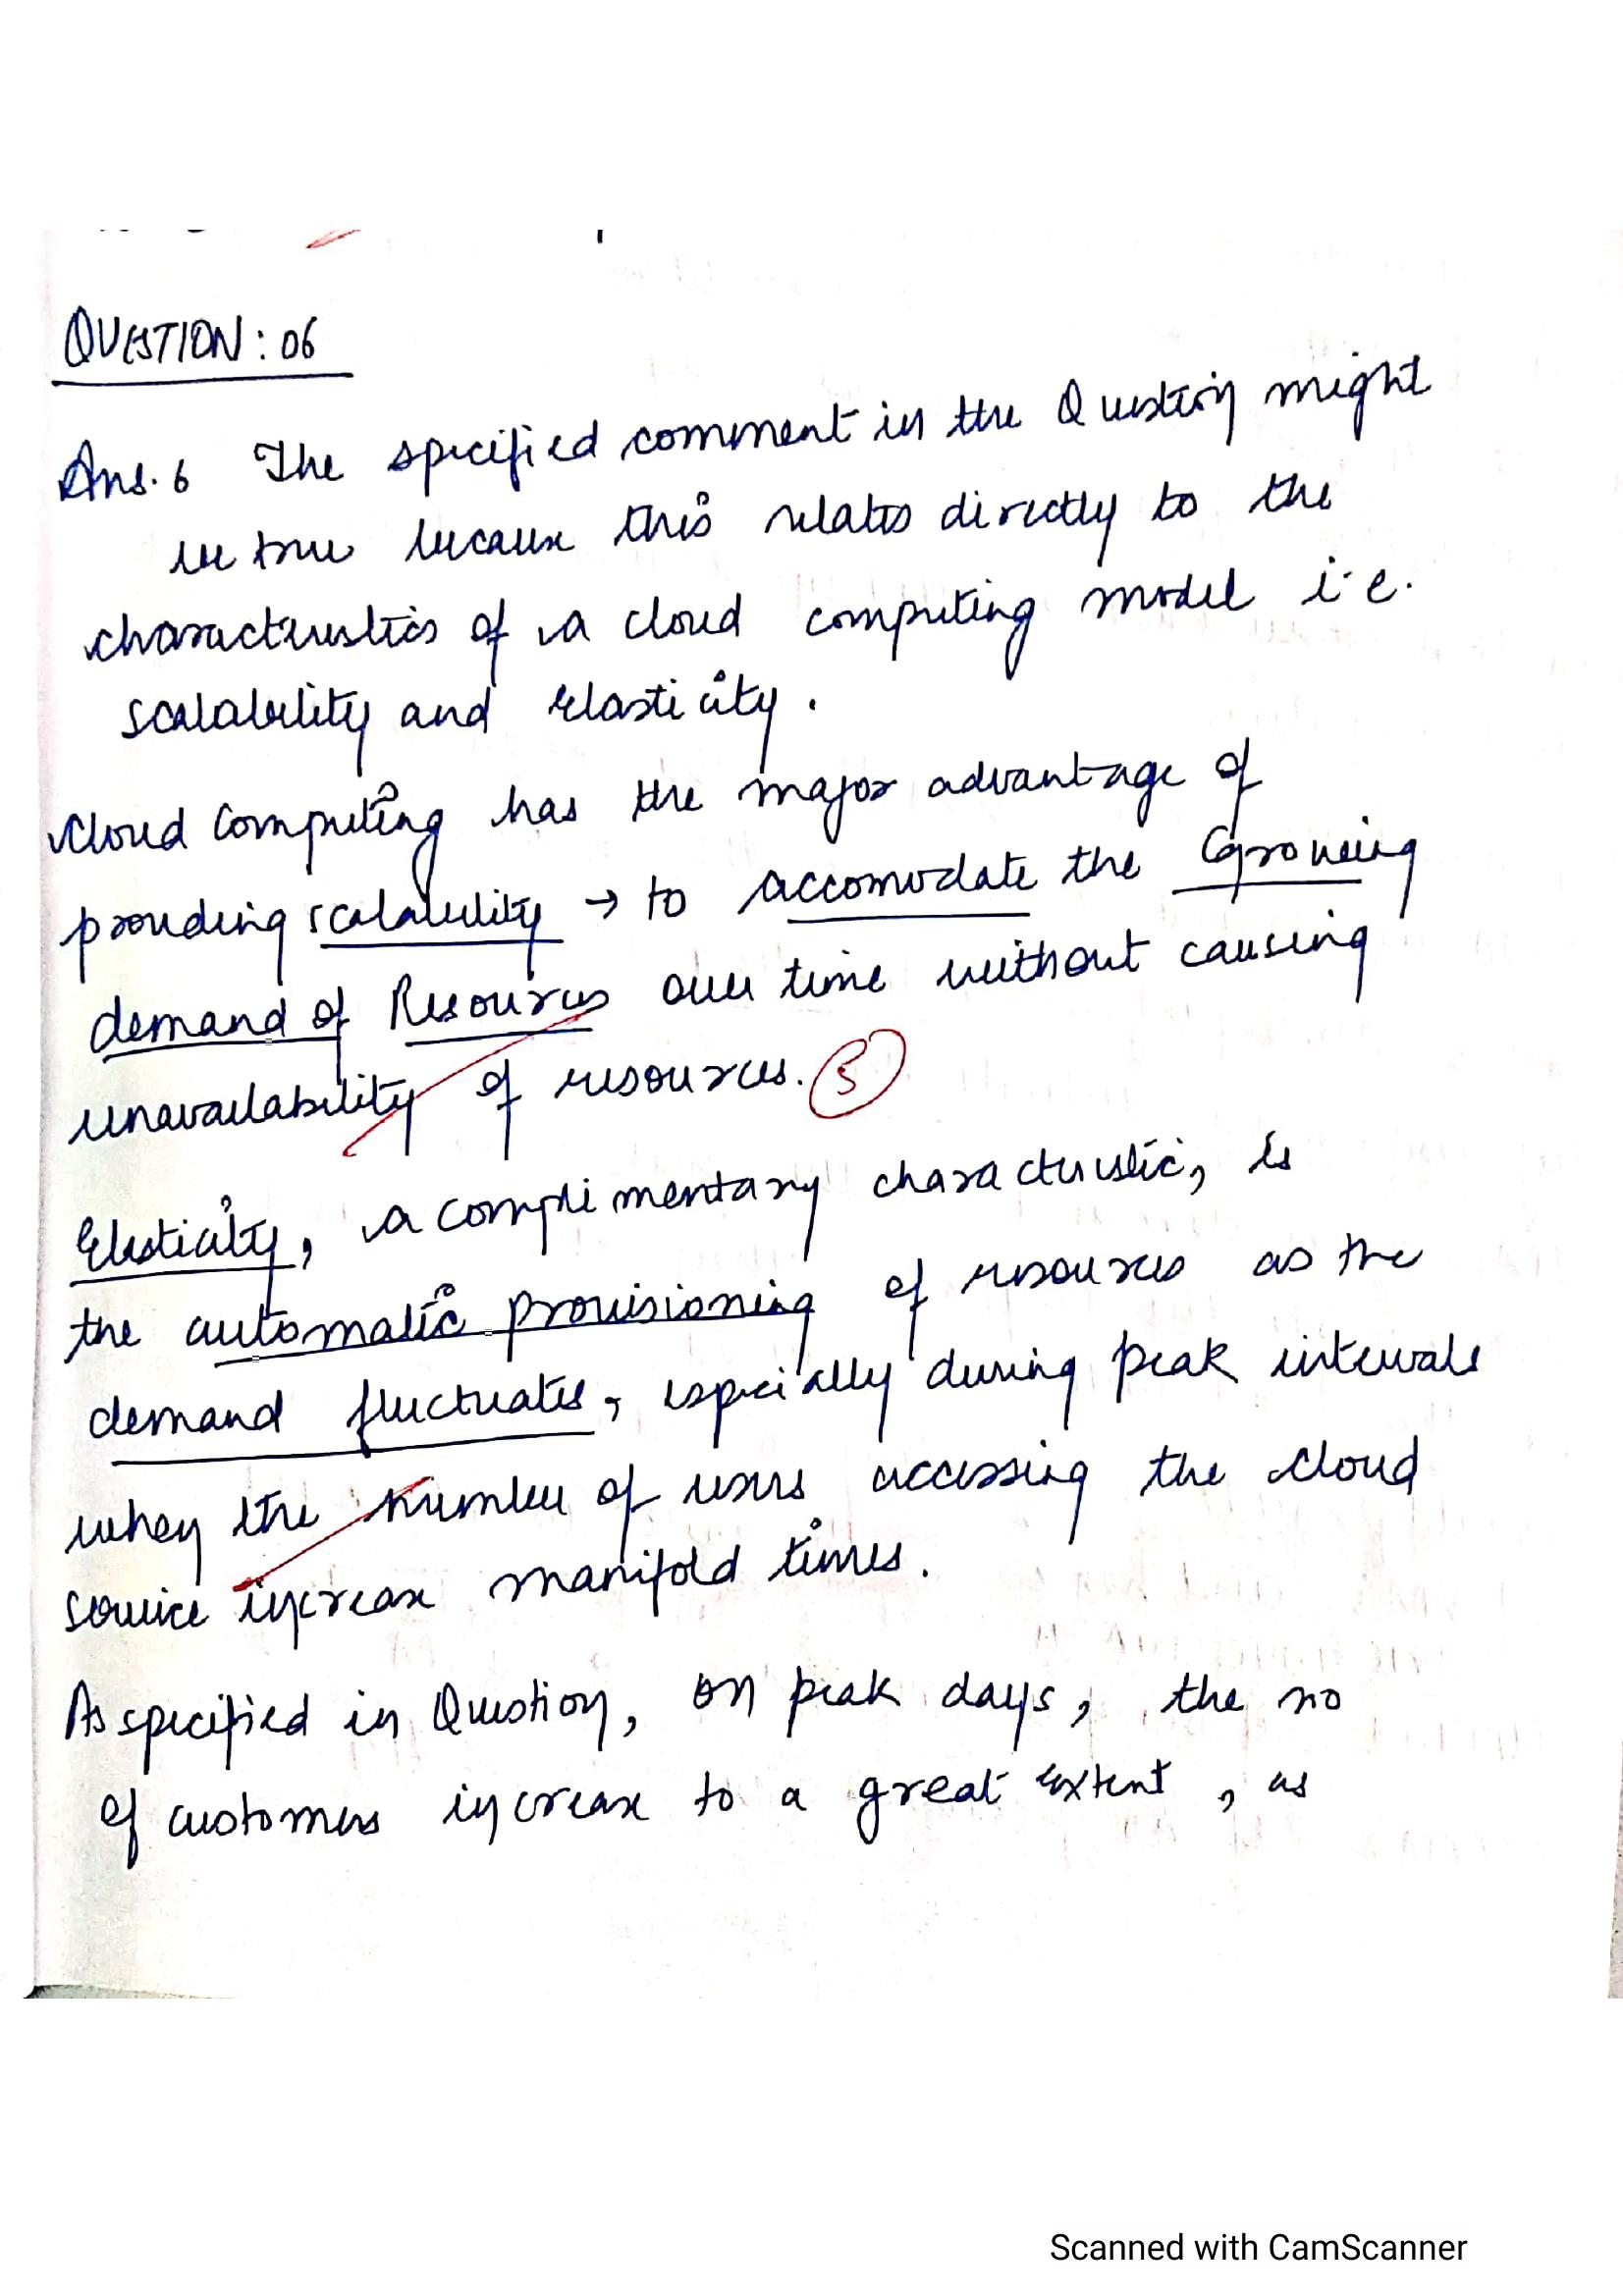 QUESTION: 06
Ans. 6 The specified comment in the Question might
be true because this relates directly to the
characteristics of a cloud computing model i.e.
scalability and elasticity.
Cloud computing has the major advantage of
providing scalability → to accomodate the Growing
demand of Resources over time without causing
unavailability of resources. 5
Elasticity, a complimentary characteristic, is
the automatic provisioning of resources as the
demand fluctuates, especially during peak intervals
when the number of users accessing the cloud
service increase manifold times.
As specified in Question, on peak days, the no
of customers increase to a great extent, as
Scanned with CamScanner